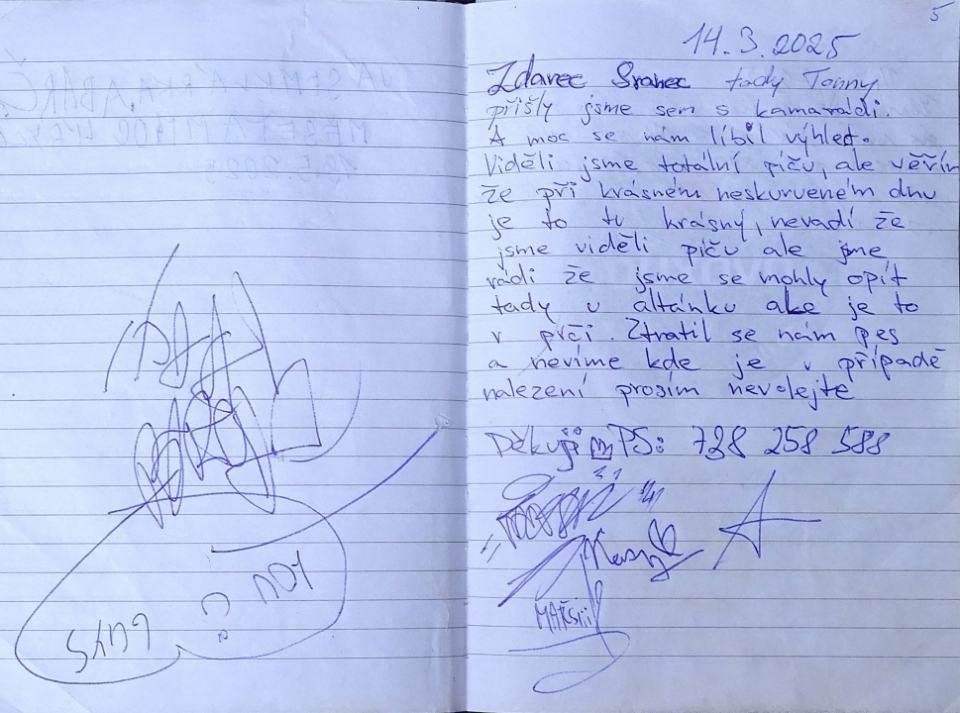 5
14.3.2025
Zdarec Sranec tady Tonny
přišly jsme sem s kamarádi.
A moc se nám líbil výhled.
Viděli jsme totální píču, ale věřím
že při krásném neskurveném dnu
je to tu krásný, nevadí že
jsme viděli píču ale jsme
rádi že jsme se mohly opít
tady v altánku ale je to
v prči. Ztratil se nám pes
a nevíme kde je v případě
nalezení prosím nevolejte
Děkuji PS: 728 258 588
A
MAKSiii
YOU
GUYS